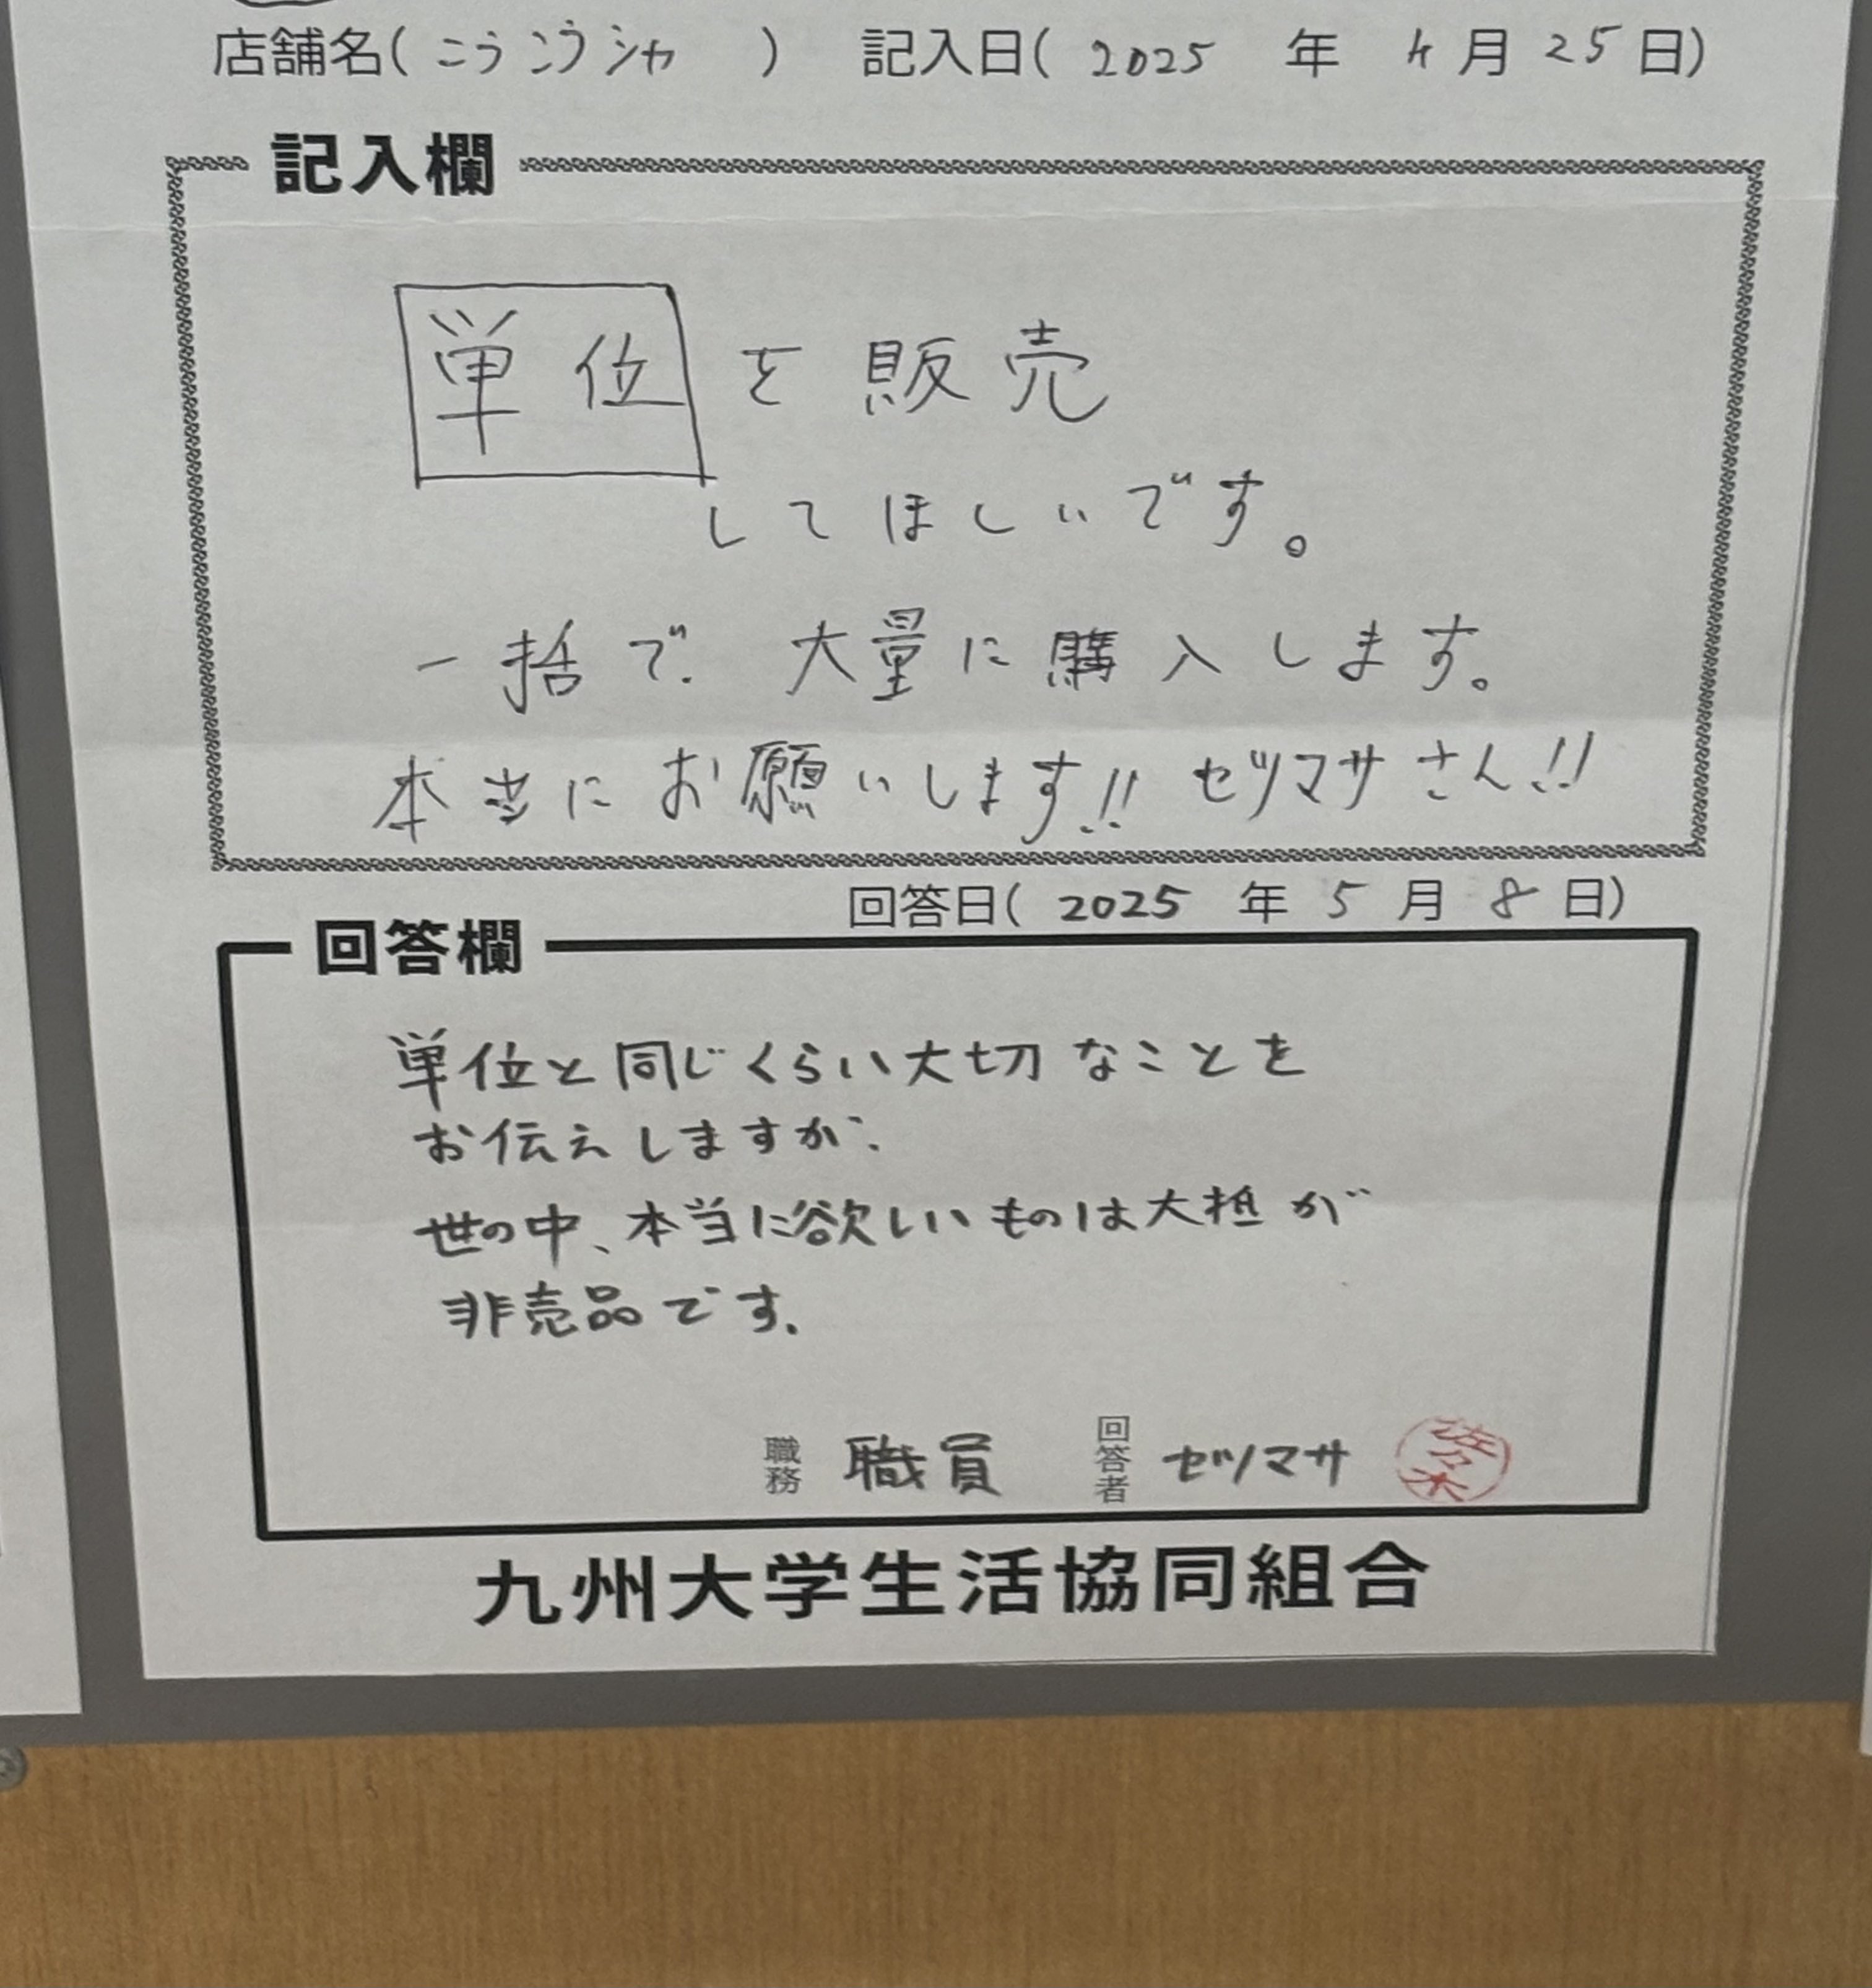 店舗名(こうこうシャ) 記入日(2025年4月25日)
記入欄
単位を販売
してほしいです。
一括で、大量に購入します。
本当にお願いします!!ゼツマサさん!!
回答日(2025年5月8日)
回答欄
単位と同じくらい大切なことを
お伝えしますが、
世の中、本当に欲しいものは大抵が
非売品です。
職務 職員 回答者 ゼツマサ
九州大学生活協同組合